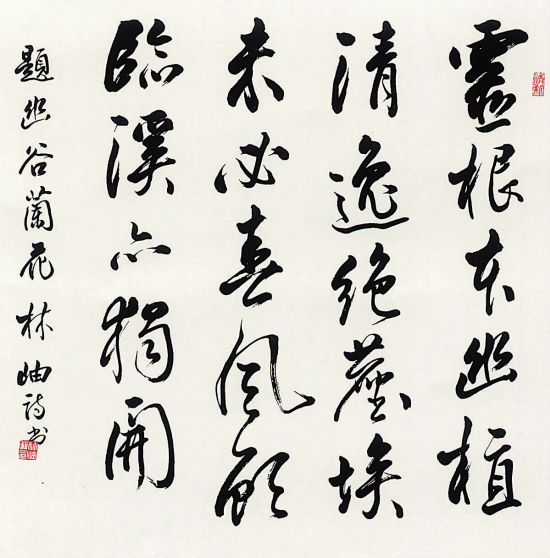 靈根本幽植
清逸絕塵埃
未必春風顧
臨溪亦獨開
題幽谷蘭花林岫詩書